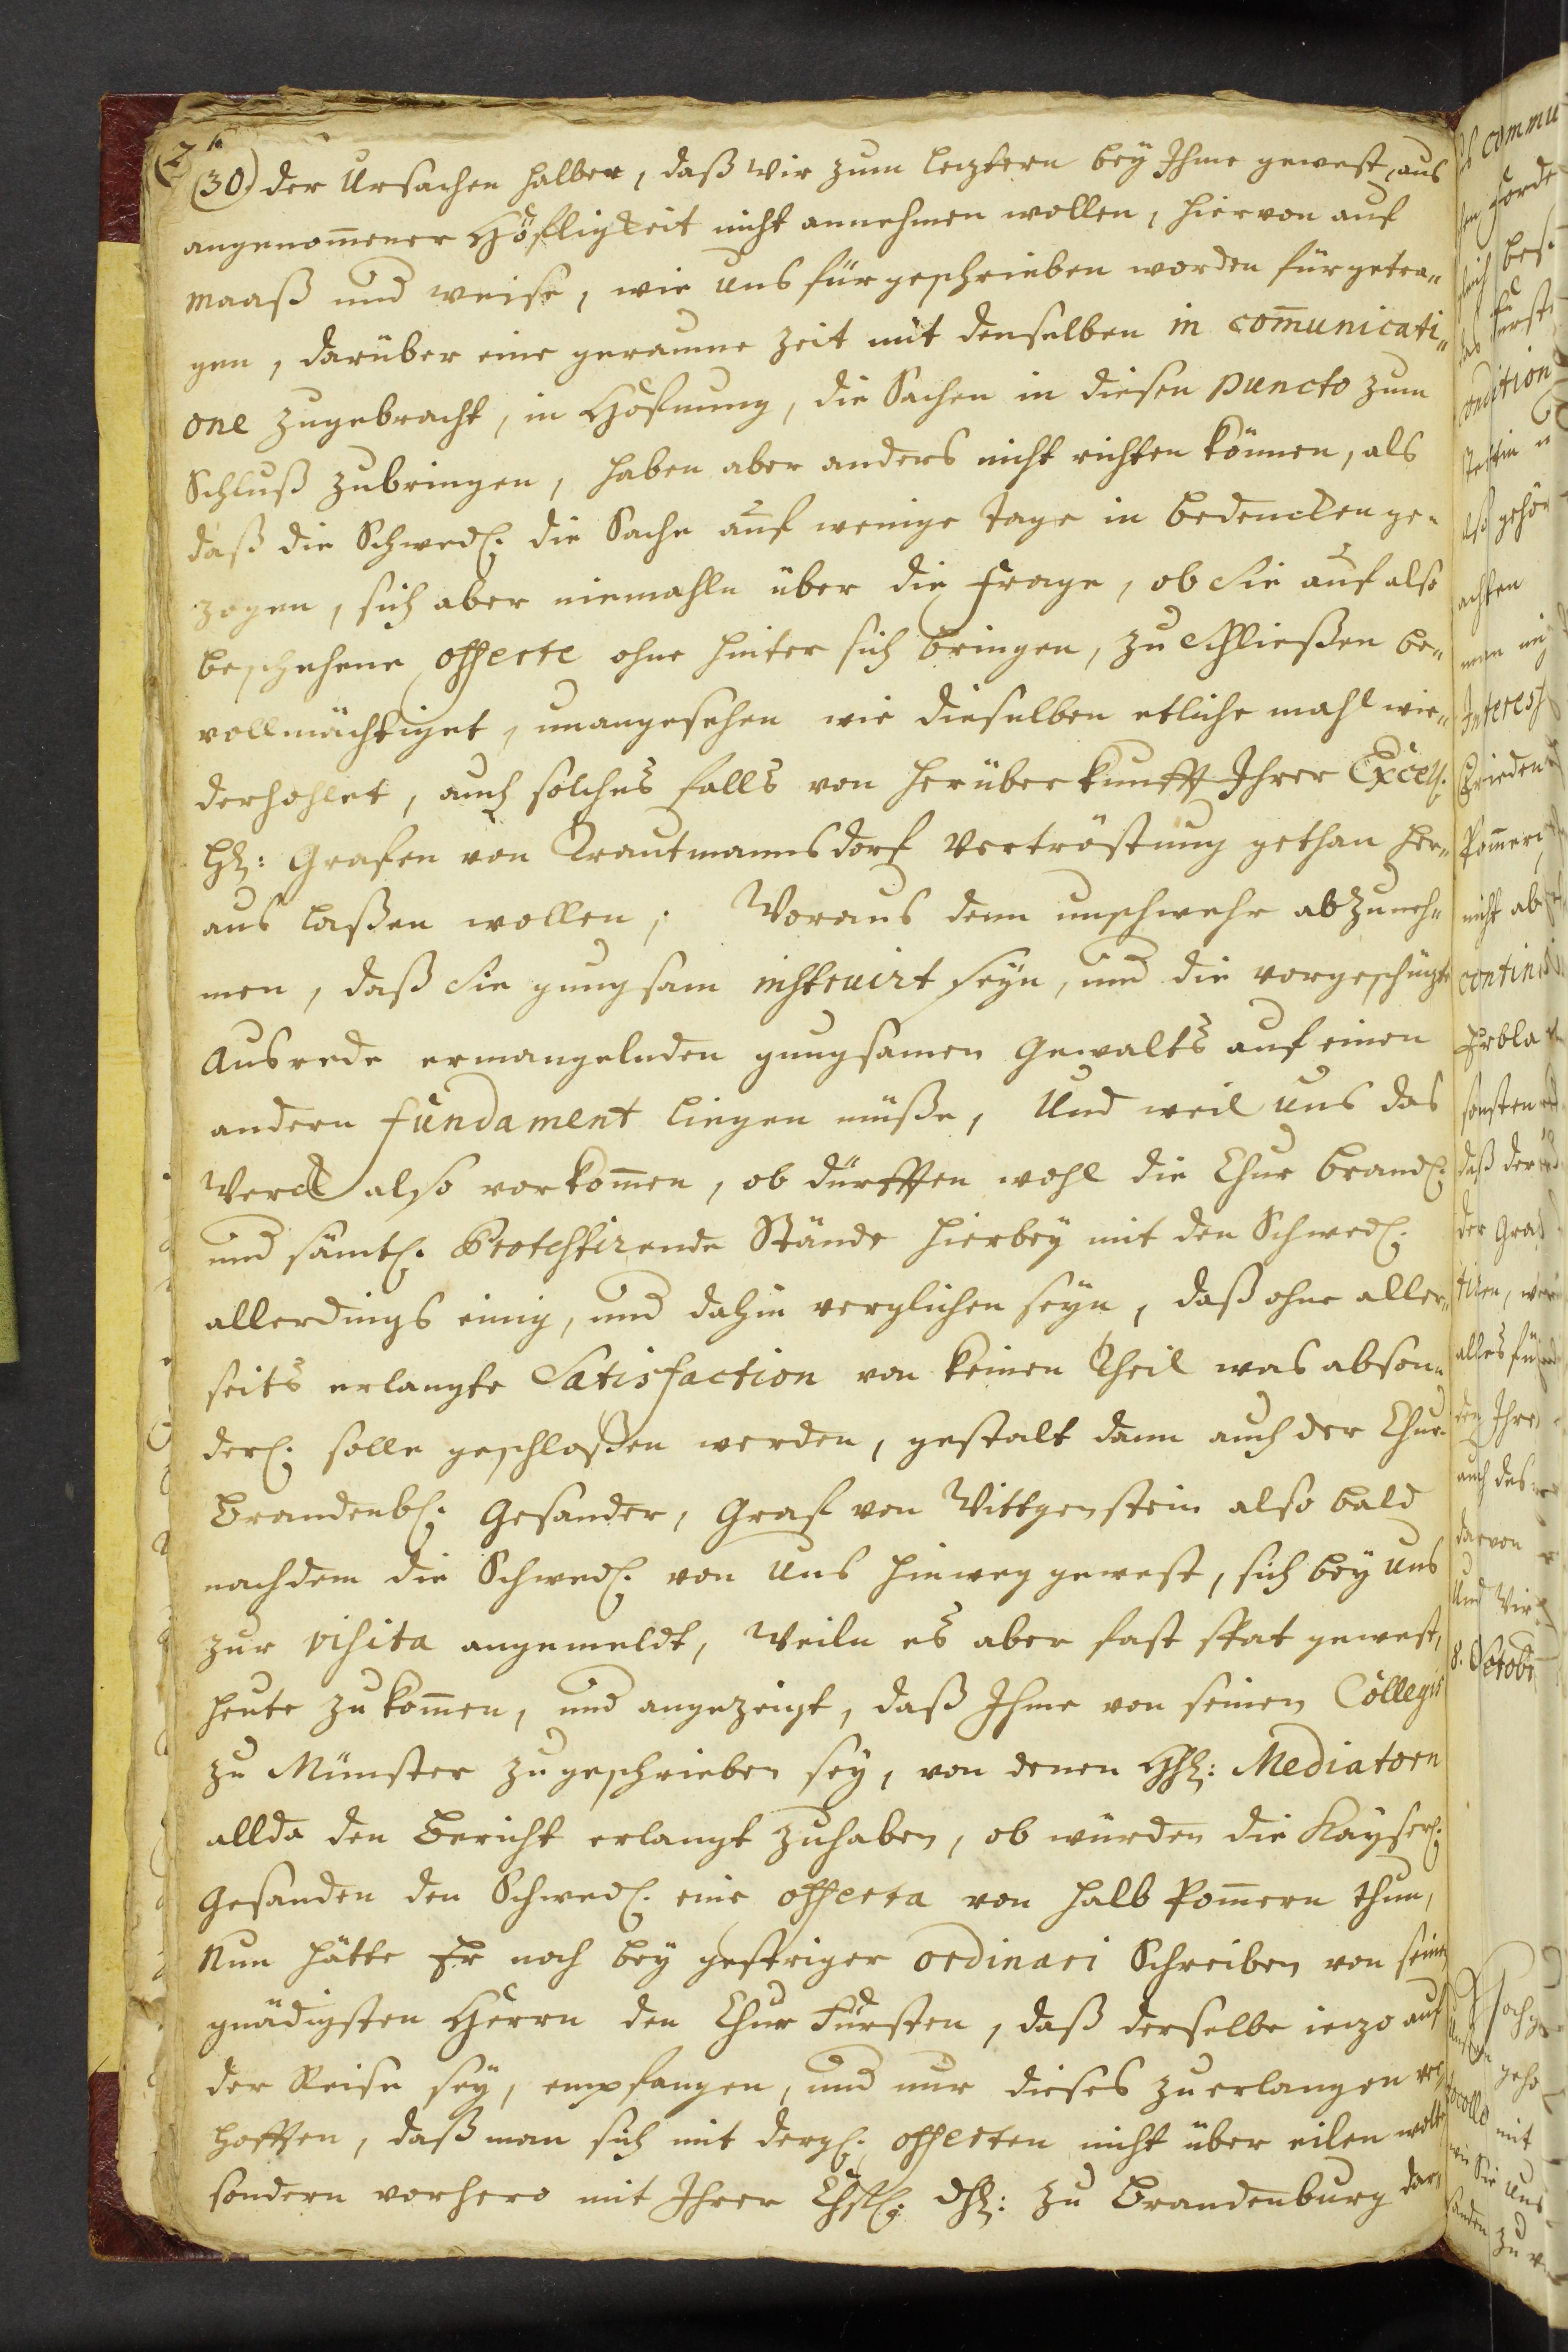 (30) der Ursachen halber, daß wir zum leztern bey Ihme gewest, aus
angenom̅ener Höfligkeit nicht annehmen wollen, hiervon auf
maaß und weise, wie uns fürgeschrieben worden fürgetra„
gen, darüber eine geraume Zeit mit denselben in com̅unicati„
one zugebracht, in Hofnung, die Sachen in diesen puncto zum
Schluß zubringen, haben aber anders nicht richten können, als
daß die Schwed. die Sache auf wenige Tage in bedencken ge„
zogen, sich aber niemahln über die Frage, ob Sie auf also
beschehene offerte ohne hinter sich bringen, zu schließen be„
vollmächtiget, unangesehen wir dieselben etliche mahl wie„
derhohlet, auch solches falls von herüberkunfft Ihrer Excell.
Hh: Grafen von Trautmannsdorf Vertröstung gethan her„
aus laßen wollen; Woraus denn unschwehr abzuneh„
men, daß Sie gungsam instruirt seyn, und die vorgeschüzte
Ausrede ermangelnden gungsamen Gewalts auf einen
andern fundament liegen müße, Und weil uns das
Werck also vorkom̅en, ob dürfften wohl die Chur Brand.
und sämtl. Protestirende Stände hierbey mit den Schwed.
allerdings einig, und dahin verglichen seyn, daß ohne aller„
seits erlangte Satisfaction von keinen Theil was abson„
derl. solle geschloßen werden, gestalt dann auch der Chur
Brandenb. Gesander, Graf von Wittgenstein also bald
nachdem die Schwed. von uns hinweg gewest, sich bey uns
zur visita angemeldt, Weiln es aber fast spat gewest,
heute zu kom̅en, und angezeigt, daß Ihme von seinen Collegis
zu Münster zugeschrieben sey, von denen Hhh: Mediatorn
allda den Bericht erlangt zuhaben, ob würden die Kayserl.
Gesanden den Schwed. eine offerta von halb Pom̅ern thun,
Nun hätte Er noch bey gestriger ordinari Schreiben von seinen
gnädigsten Herrn den Chur Fürsten, daß derselbe iezo auf
der Reise sey, empfangen, und nur dieses zuerlangen ver„
hoffen, daß man sich mit dergl. offerten nicht über eilen wolte,
sondern vorhero mit Ihrer Chfl. Dhh: zu Brandenburg dar„